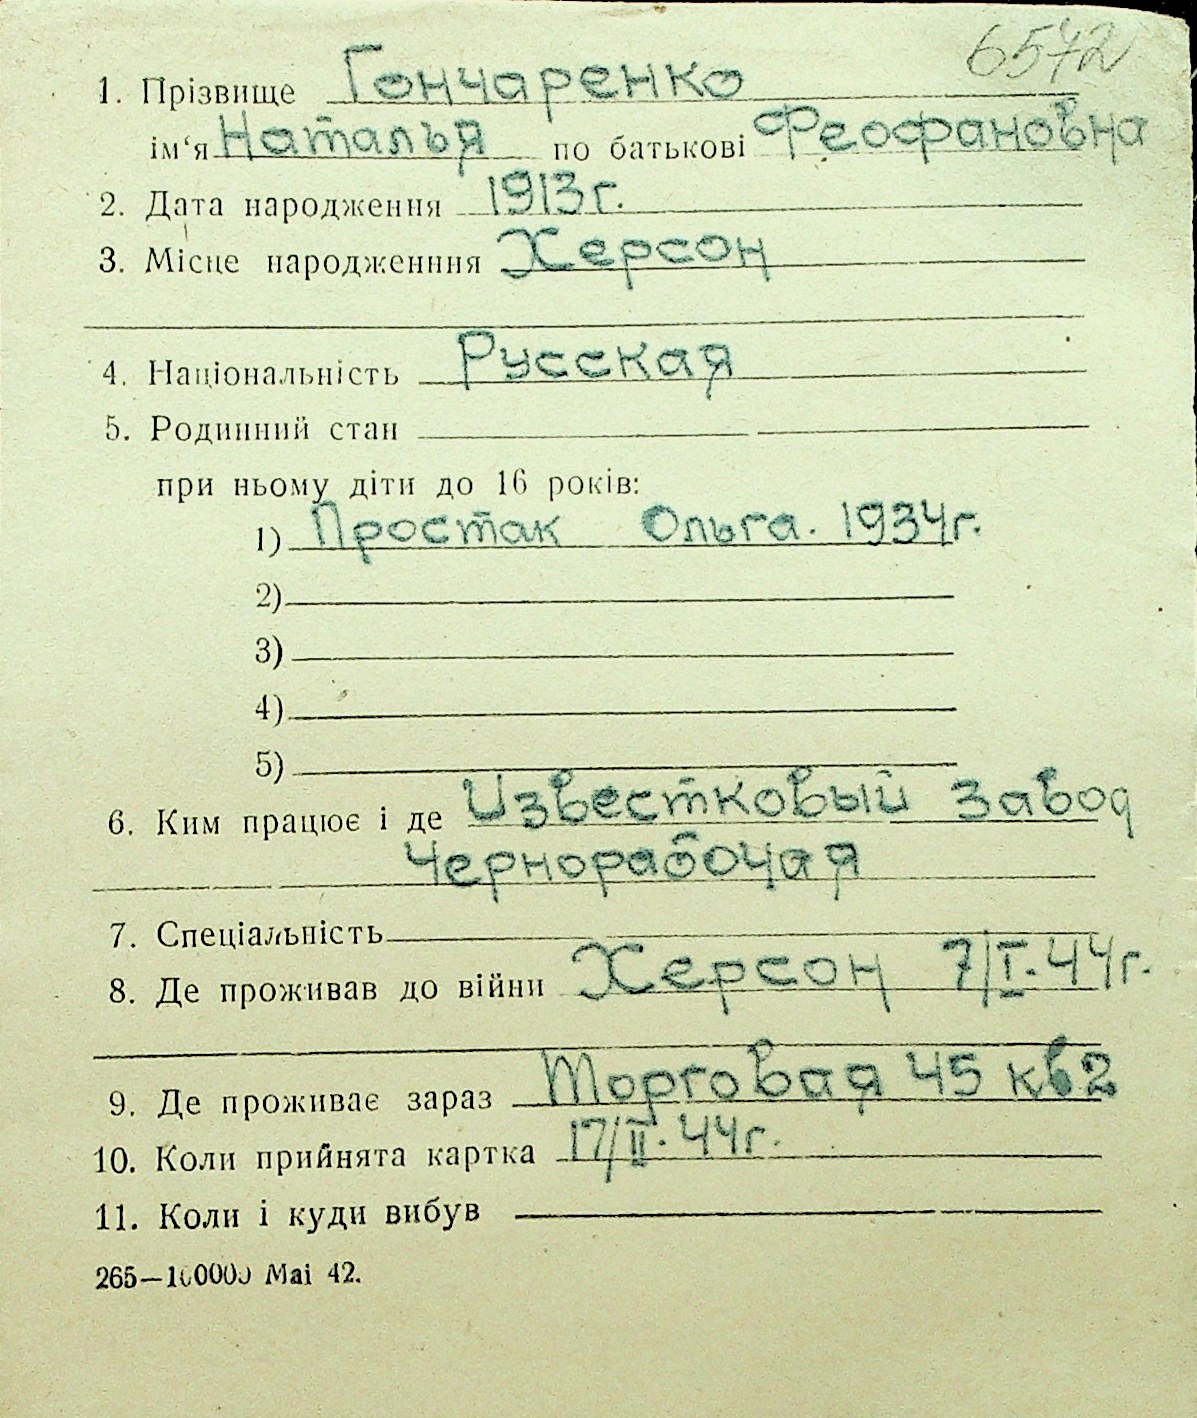 6572
1. Прізвище Гончаренко
ім‘я Наталья по батькові Феофановна
2. Дата народження 1913г.
3. Місце народженння Херсон
4. Національність Русская
5. Родинний стан
при ньому діти до 16 років:
1) Простак Ольга. 1934г.
2)
3)
4)
5)
6. Ким працює і де Известковый завод
Чернорабочая
7. Спеціальність
8. Де проживав до війни Херсон 7/I.44г.
9. Де проживає зараз Торговая 45 кв2
10. Коли прийнята картка 17/II.44г.
11. Коли і куди вибув
265—100000 Mai 42.